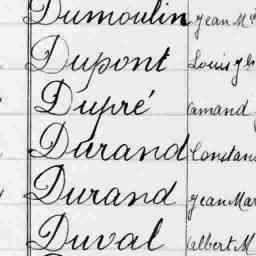 Dumoulin Jean M
Dupont Louis
Dupré amand
Durand Constan
Durand Jean Mar
Duval albert M